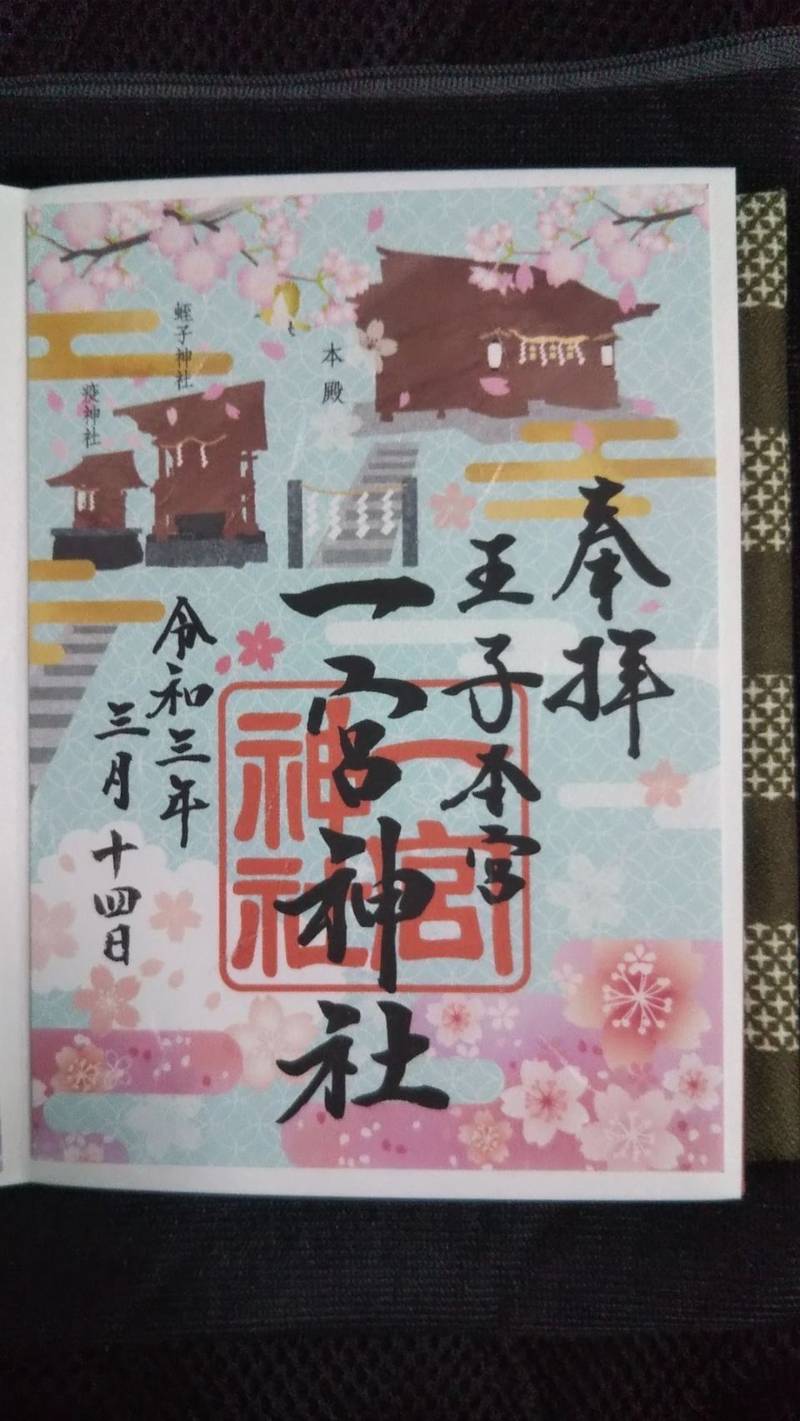 奉拝
王子本宮
一宮神社
一宮
神社
令和三年
三月十四日
本殿
蛭子神社
疫神社